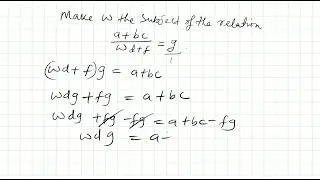 Make w the subject of the relation
a+bc / wd+f = g / 1
(wd+f)g = a+bc
wdg + fg = a+bc
wdg + fg - fg = a+bc - fg
wdg = a-